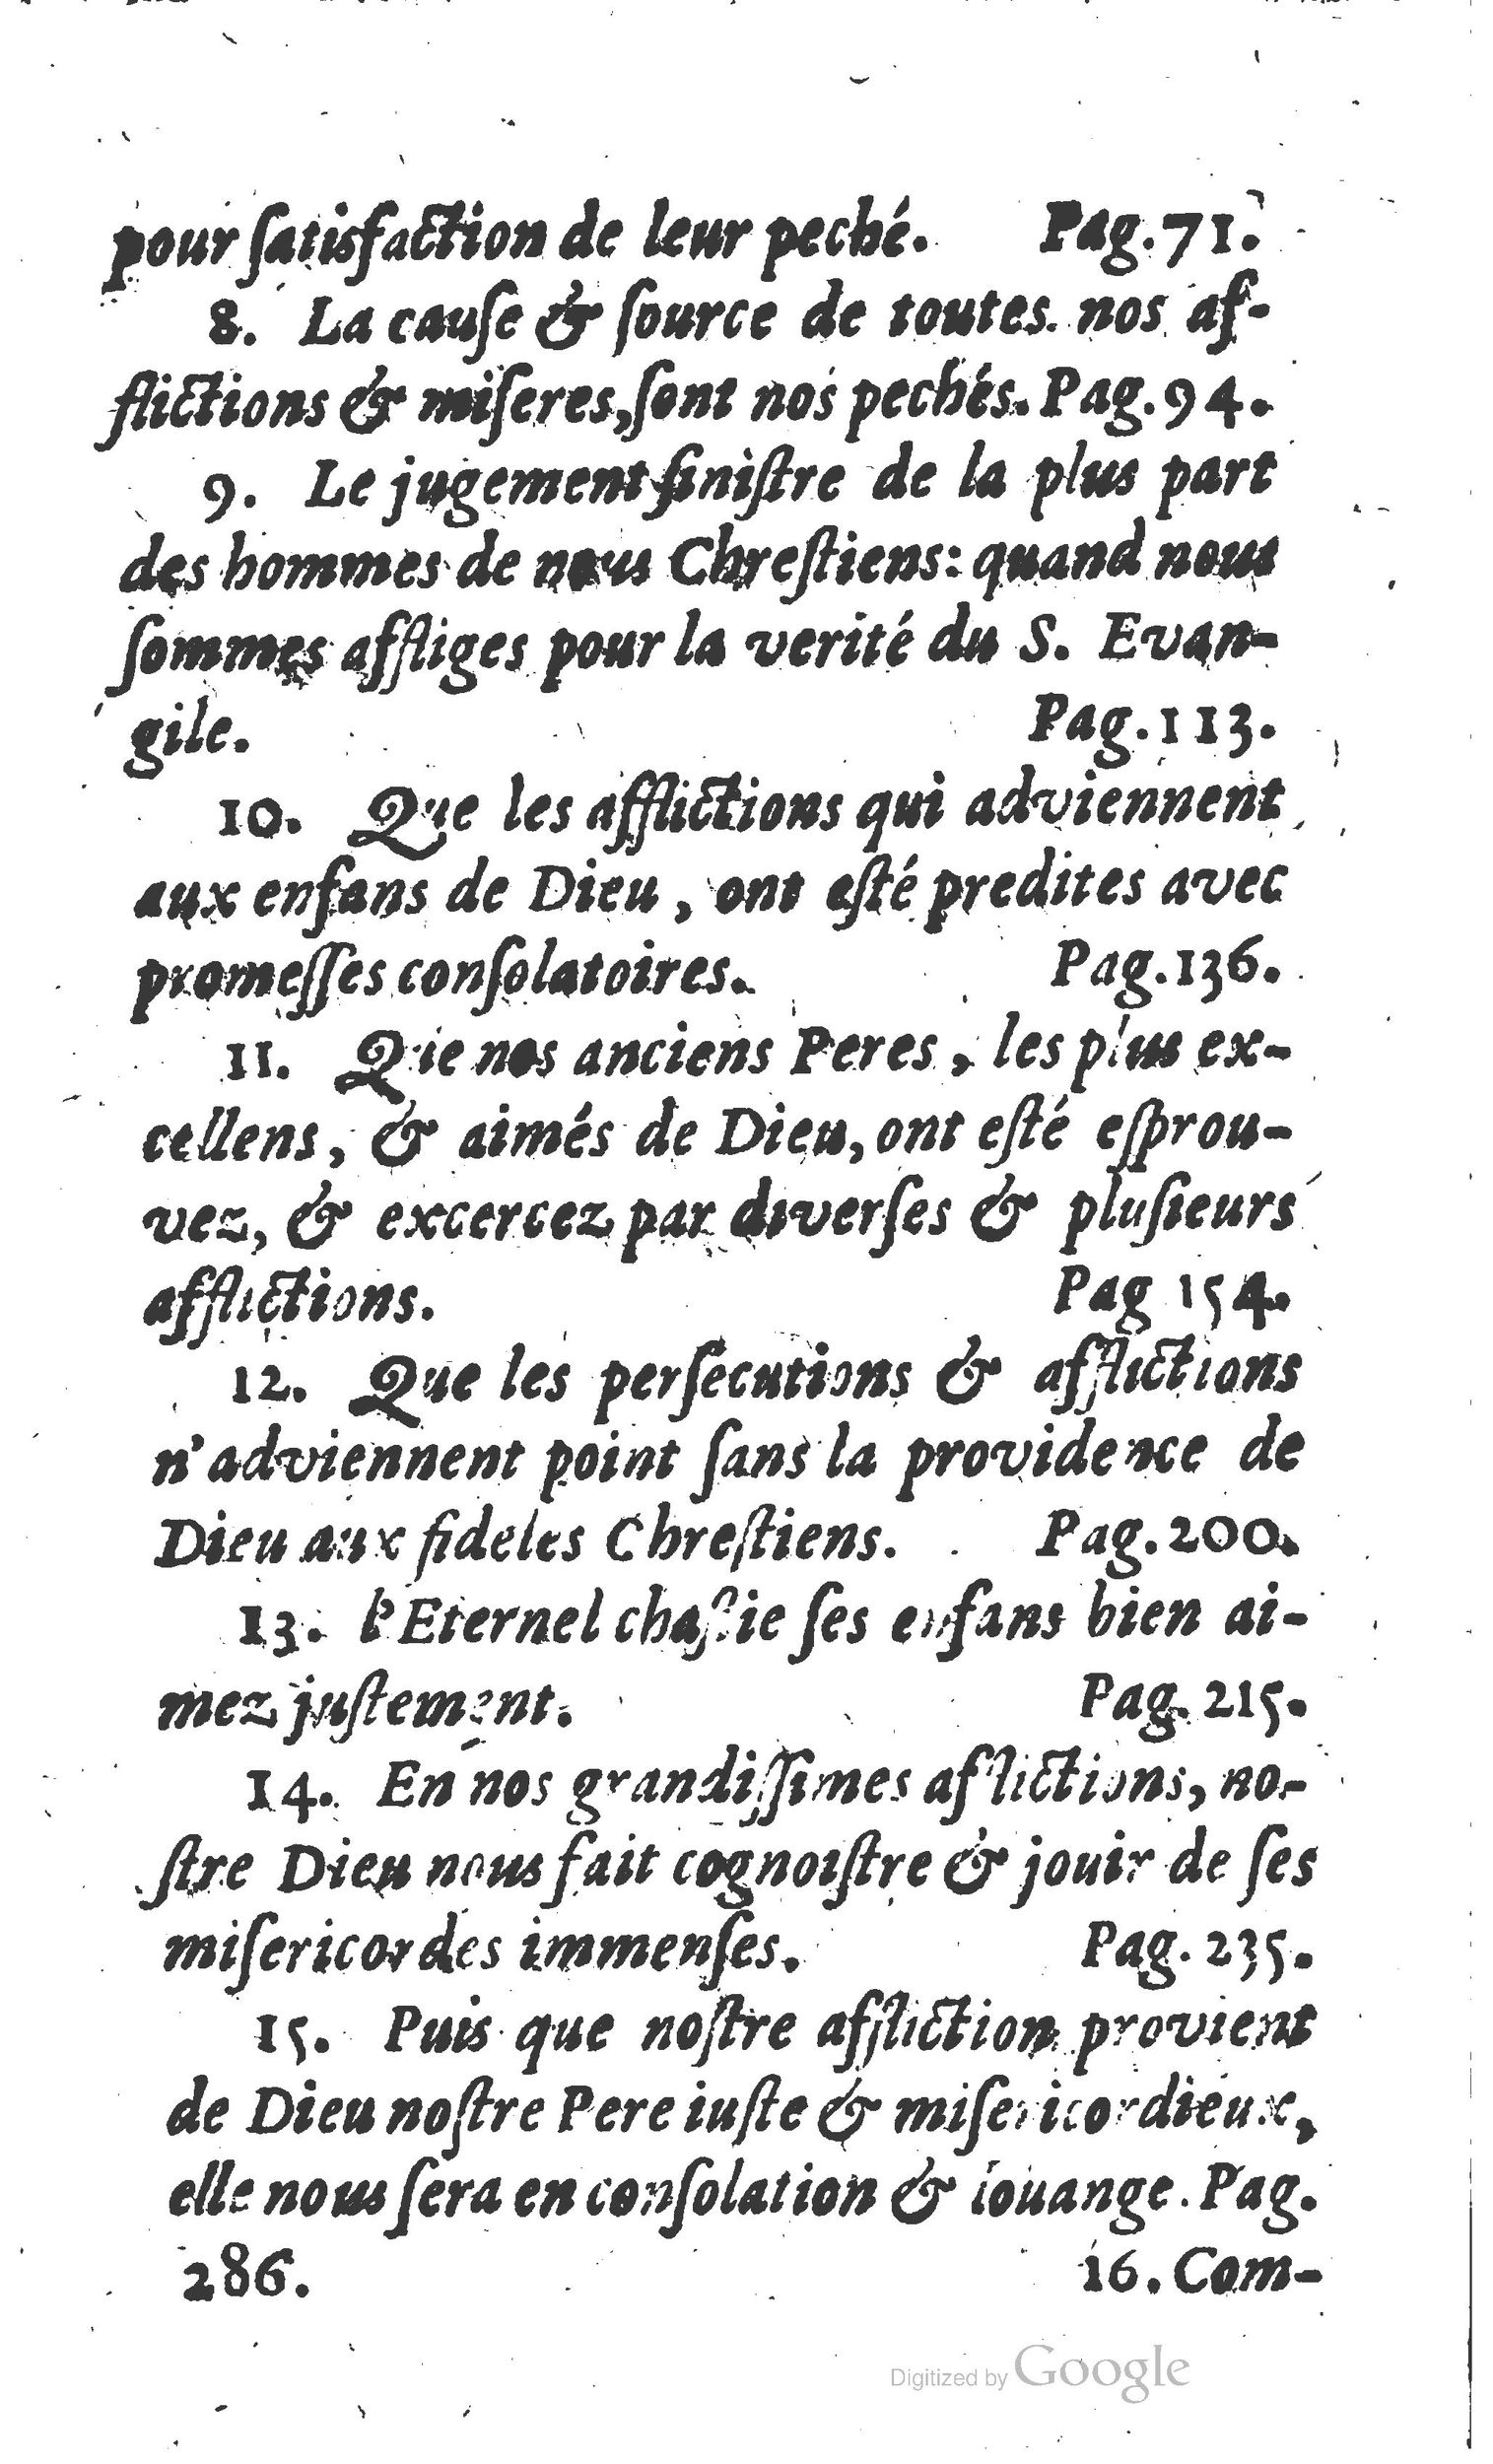 pour ſatisfaction de leur peché. Pag. 71.
8. La cauſe & ſource de toutes nos af-
flictions & miſeres, ſont nos pechés. Pag. 94.
9. Le jugement ſiniſtre de la plus part
des hommes de nous Chreſtiens: quand nous
ſommes affliges pour la verité du S. Evan-
gile. Pag. 113.
10. Que les afflictions qui adviennent
aux enfans de Dieu, ont eſté predites avec
promeſſes conſolatoires. Pag. 136.
11. Que nos anciens Peres, les plus ex-
cellens, & aimés de Dieu, ont eſté eſprou-
vez, & excercez par diverſes & pluſieurs
afflictions. Pag 154.
12. Que les perſecutions & afflictions
n'adviennent point ſans la providence de
Dieu aux fideles Chreſtiens. Pag. 200.
13. l'Eternel chaſtie ſes enfans bien ai-
mez juſtement. Pag. 215.
14. En nos grandiſſimes afflictions, no-
ſtre Dieu nous fait cognoiſtre & jouir de ſes
miſericordes immenſes. Pag. 235.
15. Puis que noſtre affliction provient
de Dieu noſtre Pere iuſte & miſericordieux,
elle nous ſera en conſolation & louange. Pag.
286. 16. Com-
Digitized by Google